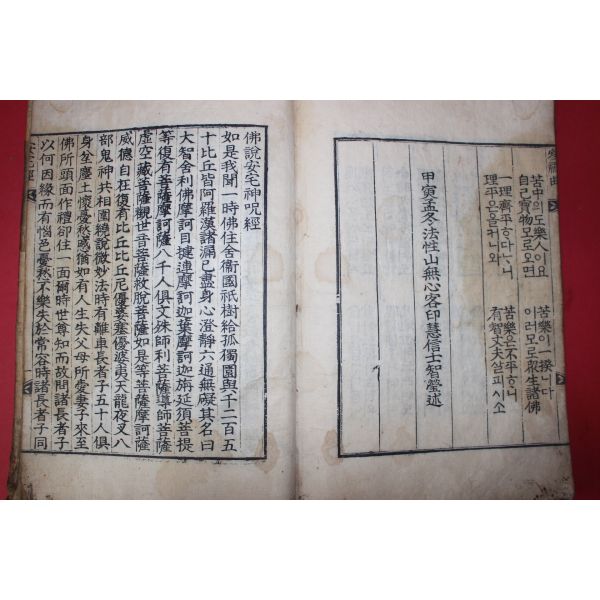 苦中의도樂人이요
苦樂이一揆니다
自己寶物모로오면
이러모로衆生諸佛
一理齊平하다니
苦樂은不平하니
理平은을커니와
有智丈夫살피시소
甲寅孟冬法性山無心客印慧信士智瑩述
佛說安宅神呪經
如是我聞一時佛住舍衛國祇樹給孤獨園與千二百五
十比丘皆阿羅漢諸漏已盡身心澄靜六通無礙其名曰
大智舍利佛摩訶目揵連摩訶迦葉摩訶迦旃延須菩提
等復有菩薩摩訶薩八千人俱文殊師利菩薩導師菩薩
虛空藏菩薩觀世音菩薩救脫菩薩如是等菩薩摩訶薩
威德自在復有比丘比丘尼優婆塞優婆夷天龍夜叉八
部鬼神共相圍繞說微妙法時有離車長者子五十人俱
身坌塵土懷憂愁慼猶如有人生失父母所愛妻子來至
佛所頭面作禮卻住一面爾時世尊知而故問諸長者子
以何因緣而有惱色憂愁不樂失於常容時諸長者子同